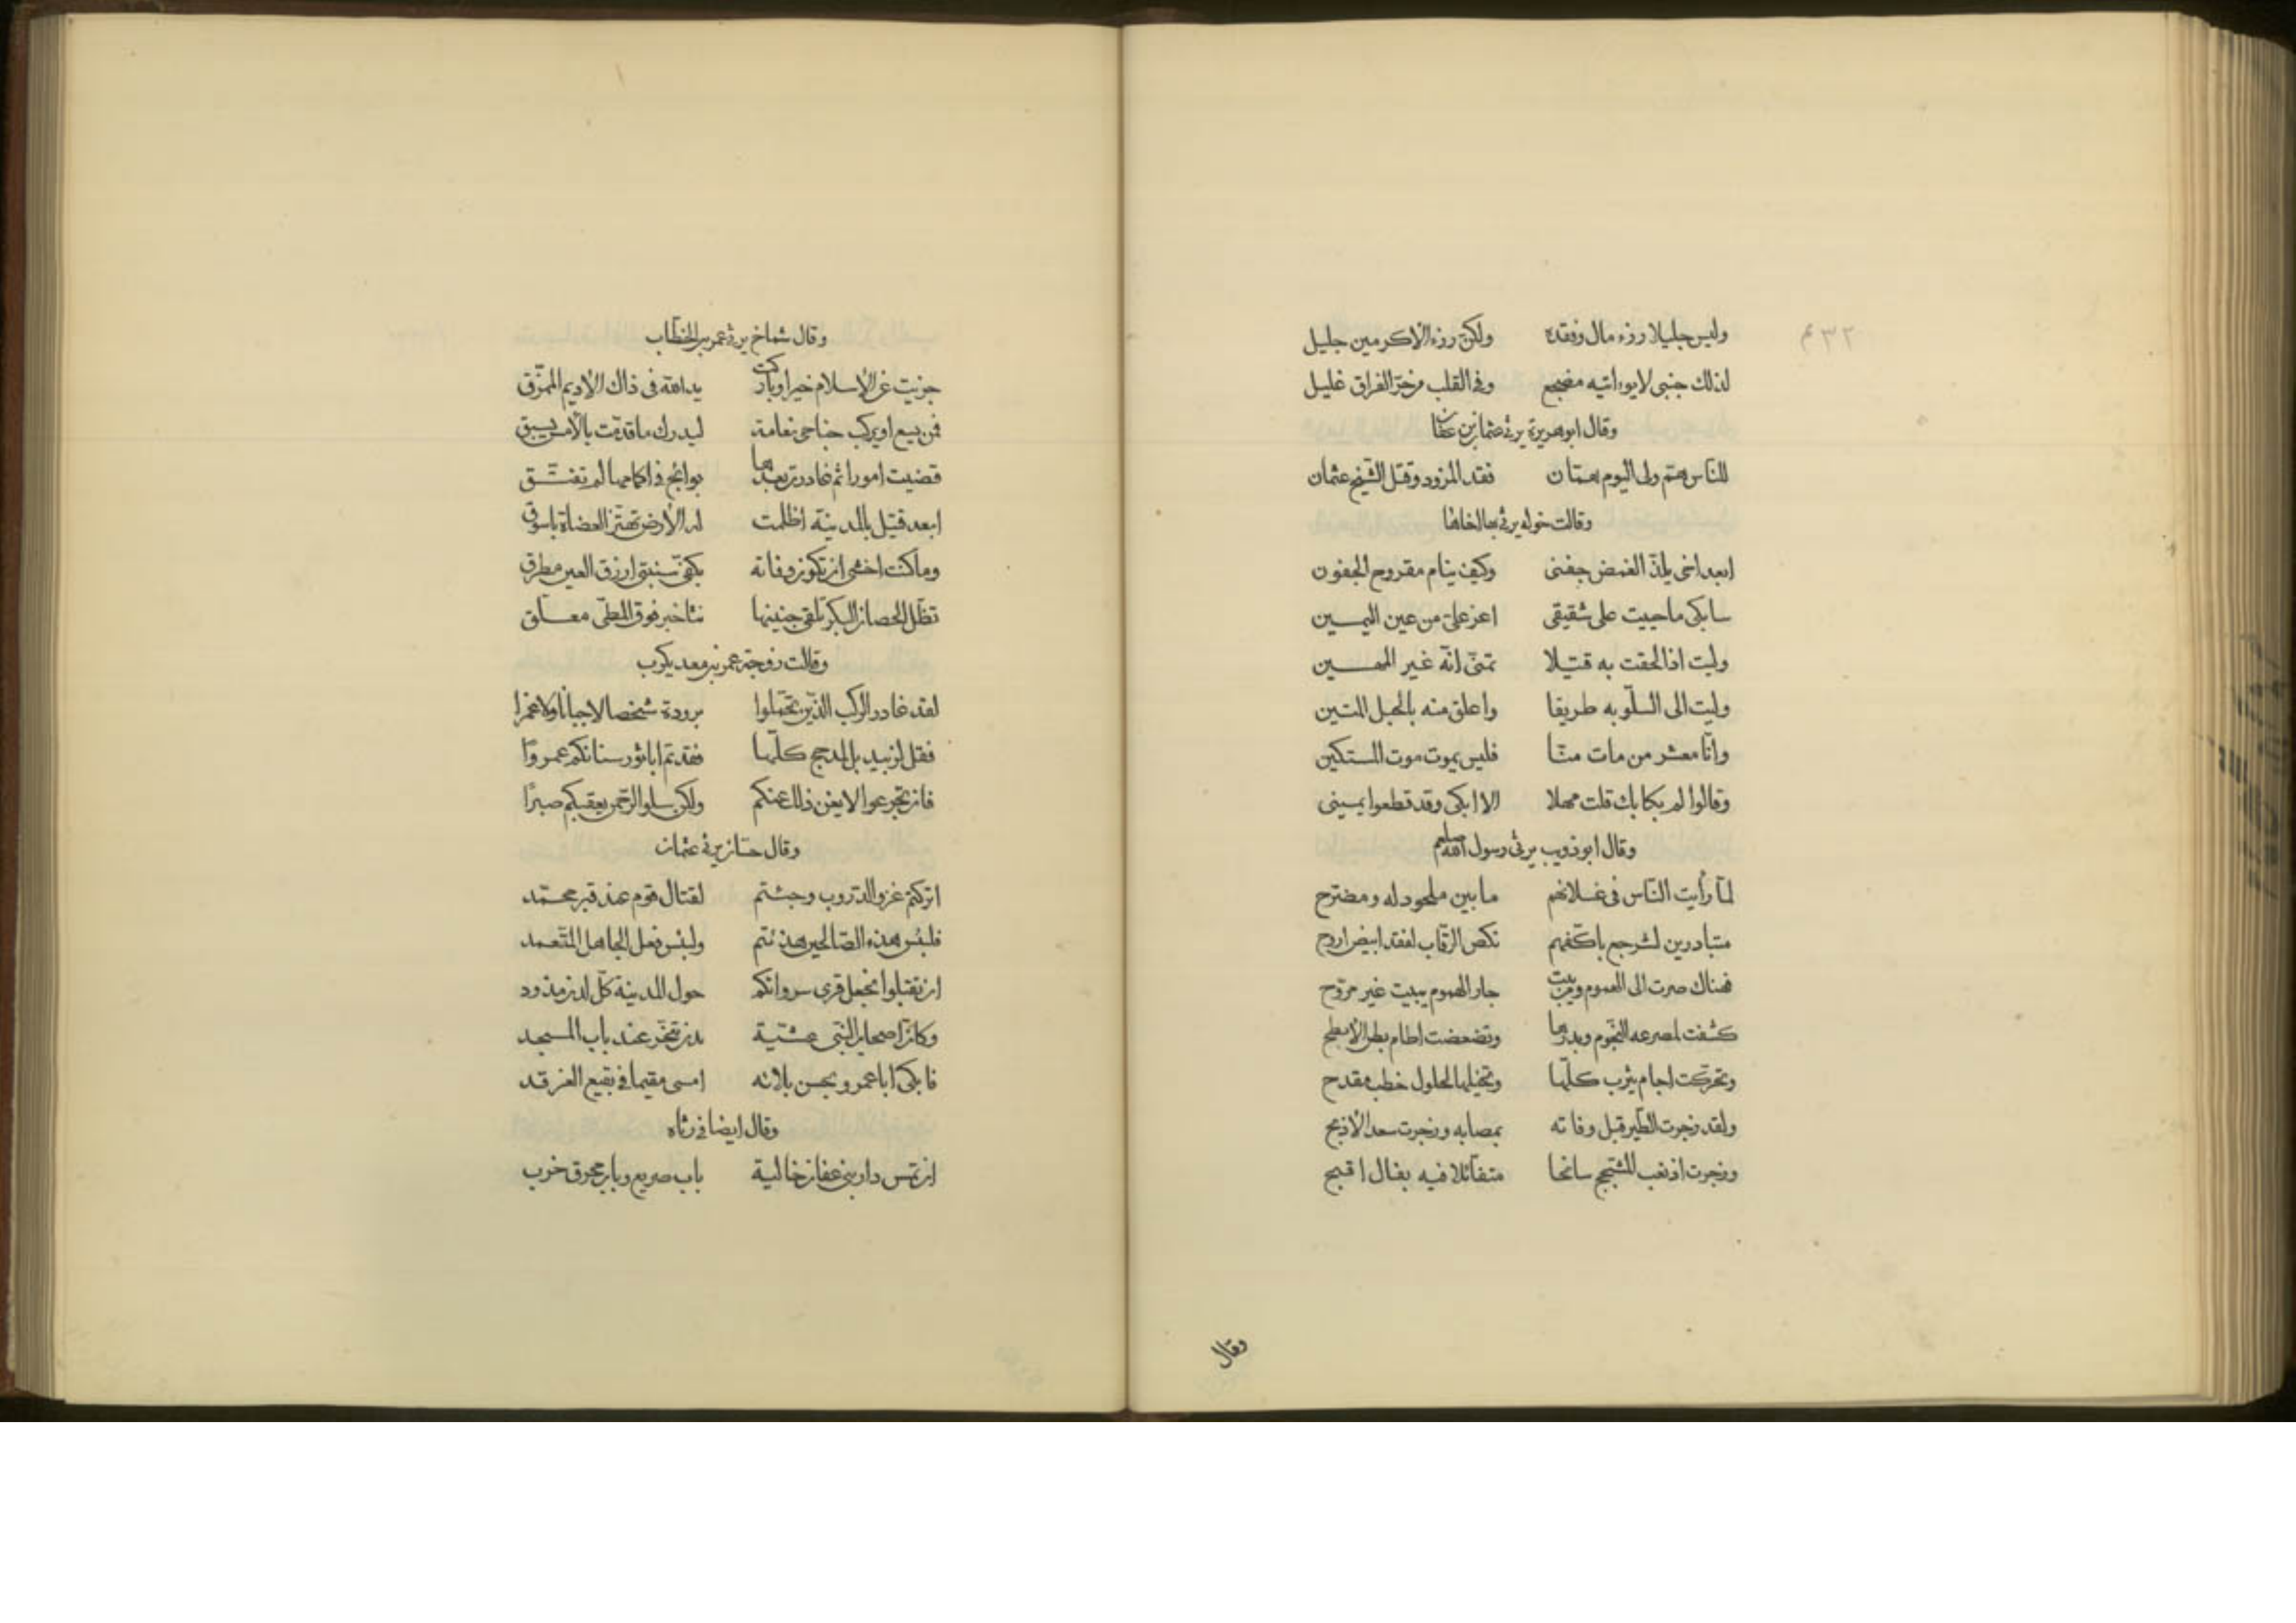 ٤٣٢
وليس جليلا رزء مال وفقده ولكن رزء الاكرمين جليل
لذلك جنبى لايواتيه مضجع وفى القلب من حرّ الفراق غليل
وقال ابوهريرة يرثى عثمان بن عفان
للناس همّ ولى اليوم همّان فقد المزود وقتل الشيخ عثمان
وقالت خوله يرثى بها اخاها
ابعد اخى يلذّ الغمض جفنى وكيف ينام مقروح الجفون
سابكى ماحييت على شقيقى اعز علىّ من عين اليمين
وليت اذا لحقت به قتيلا تمنى انّه غير
وليت الى السلّو به طريقا واعلق منه بالحبل المتين
وانّا معشر من مات منّا فليس يموت موت المستكين
وقالوا لم بكابك قلت مهلا الا ابكى وقد قطعوا يمينى
وقال ابوذويب يرثى رسول الله صلعم
لمّا رأيت النّاس فى عسلانهم مابين ملحود له ومضترح
متبادرين لشرجع باكفّهم نكص الرّقاب لفقد ابيض اروح
فهناك صرت الى الهموم ومن يبت جار الهموم يبيت غير مروّح
كشفت لمصرعه النّجوم وبدرها وتضعضعت اطام بطن الأبطح
وتحرّكت اجام يثرب كلّها ونخيلها لحلول خطب مقدح
ولقد زجرت الطّير قبل وفاته بمصابه وزجرت سعد الأذبح
وزجرت اذ نعب المشحّج سانحا متفائلا فيه بفال اقبح
وقال
وقال شماخ يرثى عمر بن الخطّاب
جزيت عن الإسلام خيرا وباركت يد الله فى ذاك الأديم الممزّق
فمن يسع اويركب جناحى نعامة ليدرك ماقدّمت بالأمس يسبق
قضيت امورا ثم غادرت بعدها بوائج فى اكمامها لم تفتّق
ابعد قتيل بالمدينة اظلمت له الأرض تهتزّ العضاة باسوق
وماكنت اخشى ان تكون وفاته بكفّى سبنتى ازرق العين مطرق
تظلّ الحصان البكر تلقى جنينها نثا خبر فوق المطىّ معلّق
وقالت زوجة عمر بن معد يكرب
لقد غادر الركب الذين تحمّلوا برودة شخصا لا جبانا ولا غمرا
فقل لزبيد بل لمدحج كلّها فقدتم اباثور سنانكم عمروا
فان تجزعوا لا يغن ذلك عنكم ولكن سلوا الرّحمن يعقبكم صبرًا
وقال حسّان يرثى عثمان
اتركتم غزو الدّروب وجئتم لقتال قوم عند قبر محمّد
فلبئس هدى الصّالحين هديتم ولبئس فعل الجاهل المتعمد
ان تقبلوا نجعل قرى سرواتكم حول المدينة كلّ لدن مذود
وكانّ اصحاب النّبى عشيّة بدن تنحّر عند باب المسجد
فابكى اباعمرو بحسن بلائه امسى مقيما فى بقيع الغرقد
وقال ايضا فى رثاه
ان تمس دار بنى عفان خالية باب صريع وباب محرق خرب